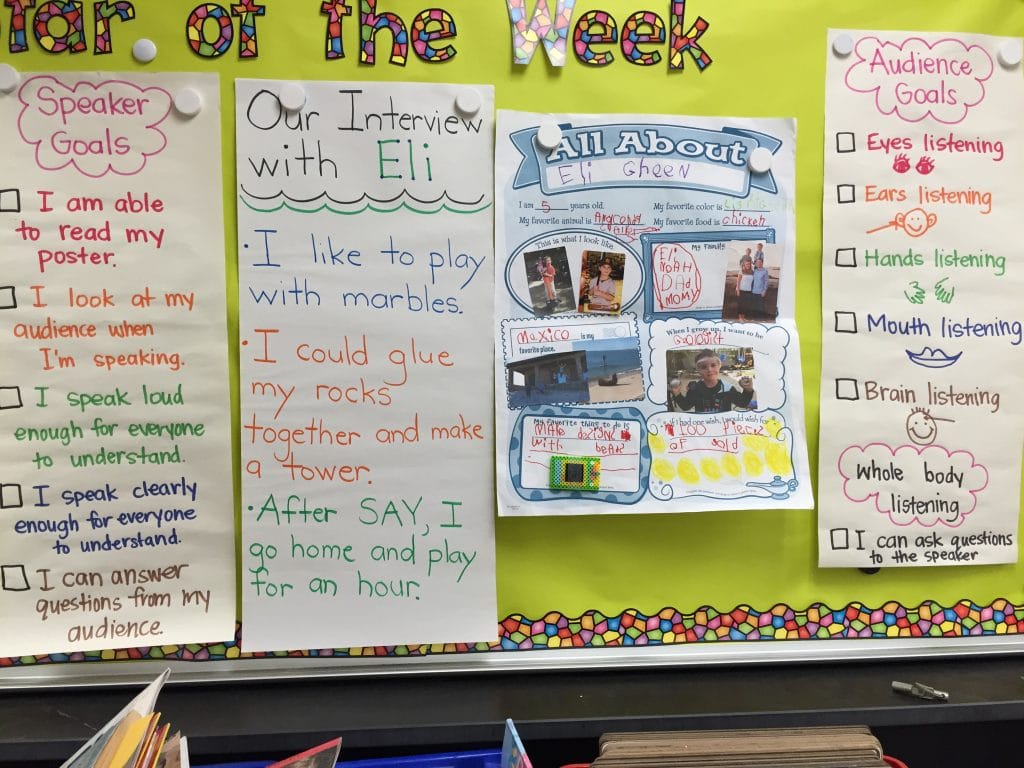 Star of the Week
Speaker
Goals
I am able
to read my
poster.
I look at my
audience when
I'm speaking.
I speak loud
enough for everyone
to understand.
I speak clearly
enough for everyone
to understand.
I can answer
questions from my
audience.
Our Interview
with Eli
• I like to play
with marbles.
• I could glue
my rocks
together and make
a tower.
• After SAY, I
go home and play
for an hour.
All About
Eli Gheen
I am 5 years old.
My favorite color is
My favorite animal is
My favorite food is chicken
This is what I look like
My Family
Eli
NOAH
DAd
MOM
Maxico is my
favorite place.
When I grow up, I want to be
My favorite thing to do is
MAke
with
If I had one wish, I would wish for
100
of gold
Audience
Goals
Eyes listening
Ears listening
Hands listening
Mouth listening
Brain listening
whole body
listening
I can ask questions
to the speaker